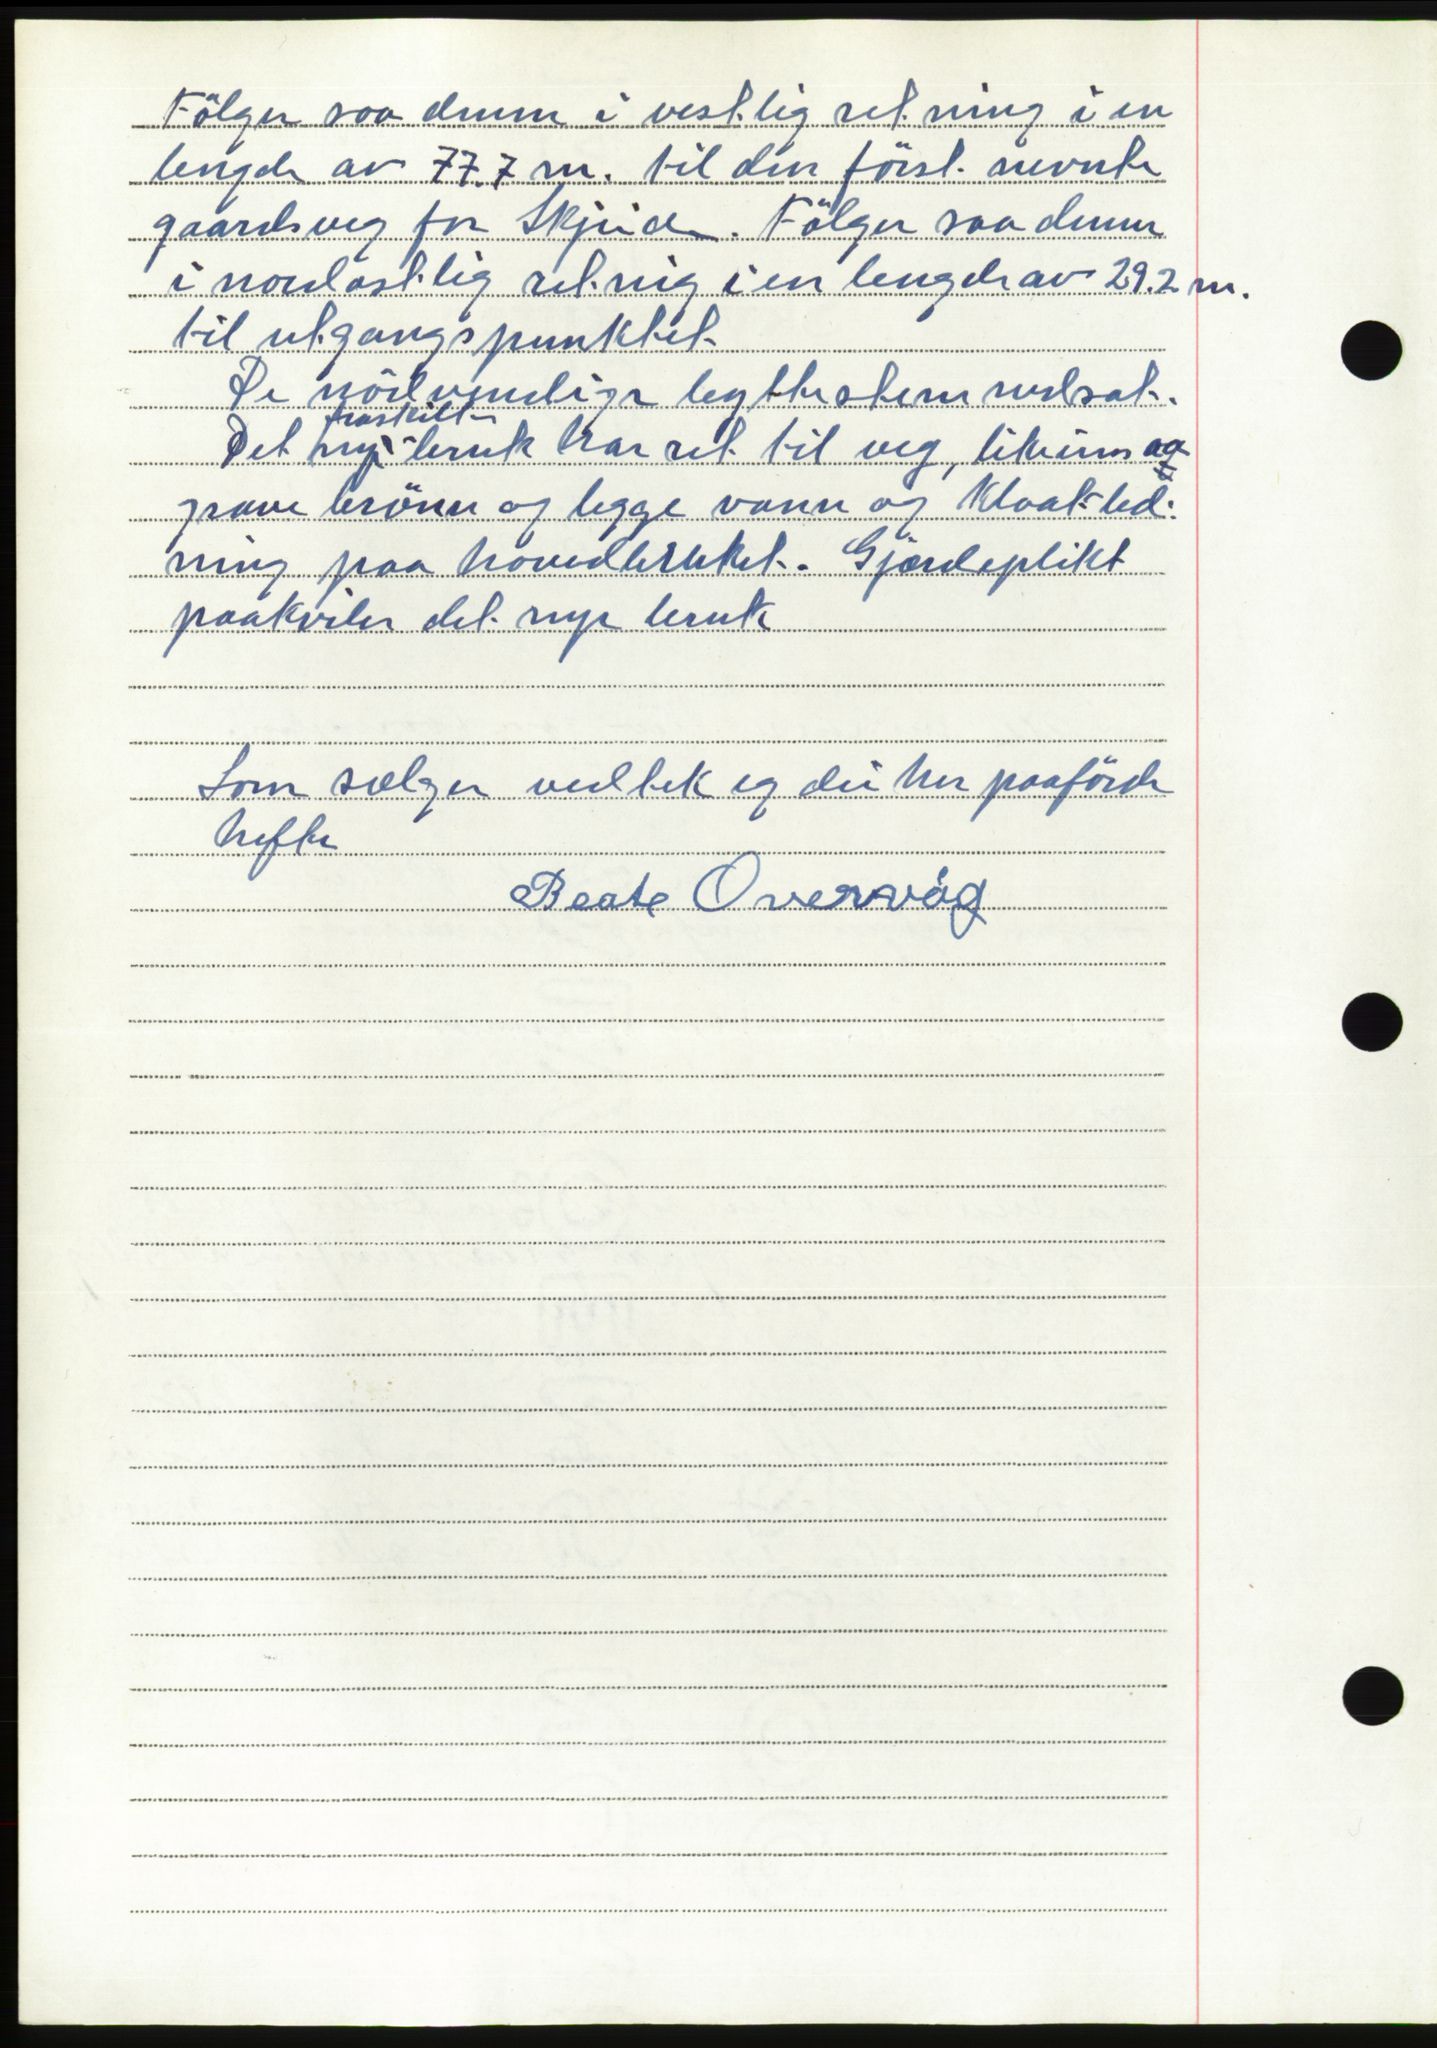 Fölger saa denne i vestlig retning i en
lengde av 77.7 m. til den först nevnte
gaardsveg for Skjeide. Fölger saa denne
i nordostlig retnig i en lengde av 29.2 m.
til utgangspunktet
De nödvendige byttesteine nedsat.
fraskilte
Det nye bruk har ret til veg, likeins og
grave brönn og legge vann og kloakled-
ning paa hovedbruket. Gjærdeplikt
paakviler det nye bruk
Som sælger vedtek eg dei her paaförde
hefte
Beate Overvåg